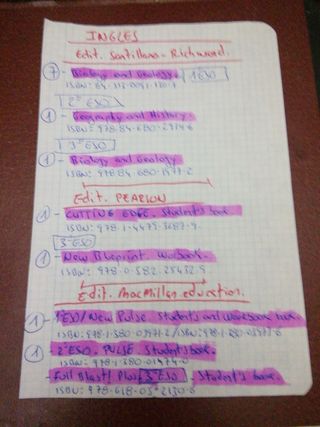 INGLES
Edit. Santillana - Richmond.
7 - Biology and Geology. 1ºESO
ISBN:
2º ESO
1 - Geography and History.
ISBN: 978-84-680-2974-6
3º ESO
1 - Biology and Geology
ISBN: 978-84-680-1977-2
Edit. PEARSON
1 - CUTTING EDGE. Student's book
ISBN: 978-1-4479-3687-9.
3º ESO
1 - New Blueprint. Workbook.
ISBN: 978-0-582-25432-9
Edit. MacMillan education.
1 - 1ºESO/New Pulse. Students and Workbook book.
ISBN:
1 - 2ºESO. PULSE. Student's book.
ISBN:
- Full Blast! Plus 3ºESO - Student's book.
ISBN: 978-618-05-2130-6